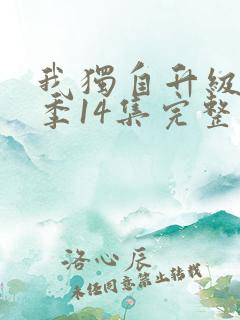 我獨自升級
季14集完整
洛心辰
未经同意禁止转载